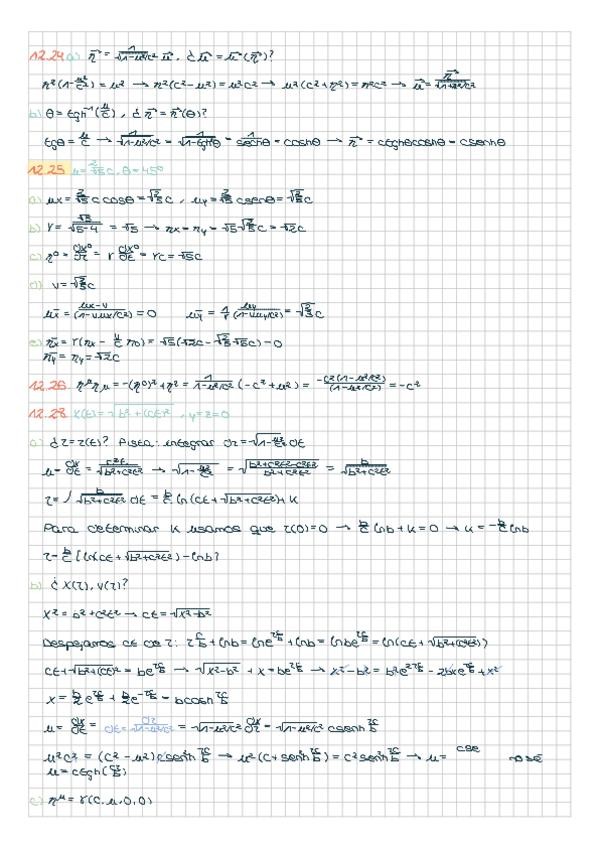 12.24 a) η⃗ = 1/√(1-u²/c²) u⃗, ¿ u⃗ = u⃗(η⃗)?
η²(1-u²/c²) = u² → η²(c²-u²) = u²c² → u²(c²+η²) = η²c² → u⃗ = η⃗/√(1+η²/c²)
b) θ = tgh⁻¹(u/c), ¿ η⃗ = η⃗(θ)?
tghθ = u/c → 1/√(1-u²/c²) = 1/√(1-tgh²θ) = 1/sechθ = coshθ → η⃗ = ctghθcoshθ = csenhθ
12.25 u = 2/√5 c, θ = 45°
a) ux = 2/√5 c cosθ = √(2/5) c, uy = 2/√5 c senθ = √(2/5) c
b) γ = √5/√(5-4) = √5 → ηx = ηy = √5 √(2/5) c = √2 c
c) η⁰ = dx⁰/dτ = γ dx⁰/dt = γc = √5 c
d) v = √(2/5) c
ux̄ = (ux-v)/(1-v ux/c²) = 0 uȳ = 1/γ uy/(1-v ux/c²) = √(2/3) c
e) η̄x = γ(ηx - v/c η0) = √5(√2 c - √(2/5) √5 c) = 0
η̄y = ηy = √2 c
12.26 η^μ η_μ = -(η⁰)² + η² = 1/(1-u²/c²) (-c²+u²) = -c²(1-u²/c²)/(1-u²/c²) = -c²
12.28 x(t) = √(b²+(ct)²), y=z=0
a) ¿ τ = τ(t)? Pista: integrar dτ = √(1-u²/c²) dt
u = dx/dt = c²t/√(b²+c²t²) → √(1-u²/c²) = √((b²+c²t²-c²t²)/(b²+c²t²)) = b/√(b²+c²t²)
τ = ∫ b/√(b²+c²t²) dt = b/c ln(ct+√(b²+c²t²)) + K
Para determinar K usamos que τ(0)=0 → b/c lnb + K = 0 → K = -b/c lnb
τ = b/c [ln(ct+√(b²+c²t²)) - lnb]
b) ¿ x(τ), v(τ)?
x² = b²+c²t² → ct = √(x²-b²)
Despejamos ct de τ: τ c/b + lnb = lne^(τc/b) + lnb = lnbe^(τc/b) = ln(ct+√(b²+(ct)²))
ct+√(b²+(ct)²) = be^(τc/b) → √(x²-b²) + x = be^(τc/b) → x²-b² = b²e^(2τc/b) - 2bxe^(τc/b) + x²
x = b/2 e^(τc/b) + b/2 e^(-τc/b) = bcosh τc/b
u = dx/dt = dt = dτ/√(1-u²/c²) = √(1-u²/c²) dx/dτ = √(1-u²/c²) csenh τc/b
u²c² = (c²-u²)c²senh² τc/b → u²(1+senh² τc/b) = c²senh² τc/b → u =
u = ctgh(cτ/b)
c) η^μ = γ(c, u, 0, 0)